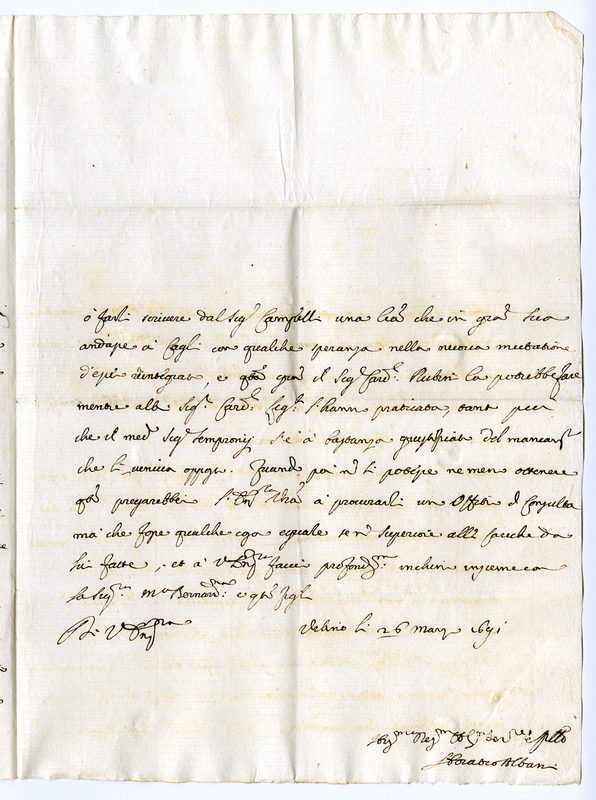 ò farli scrivere dal Sig.r Campelli una lra che in gra sua
andasse à Cagli con qualche speranza nella nuova mutatione
d'esser reintegrato, e gra il Sig.r Card. Rubini la potrebbe fare
mentre alli Sig.ri Card. l'hanno praticata, tanto più
che il med.o Sig.r Sempronij s'è à bastanza giustificato del mancam.to
che li veniva opposto. Quando poi nò li potesse ne meno ottenere
pregarebbe à procurarli un Offitio di Consulta
mà che fosse qualche cosa eguale se nò superiore alle fatiche da
lui fatte; et à faccio profond.mo inchino insieme con
la Sig.ra M.a Bernard.na e figli
Di V.
Urbino li 26 marzo 1691
Horatio Albani